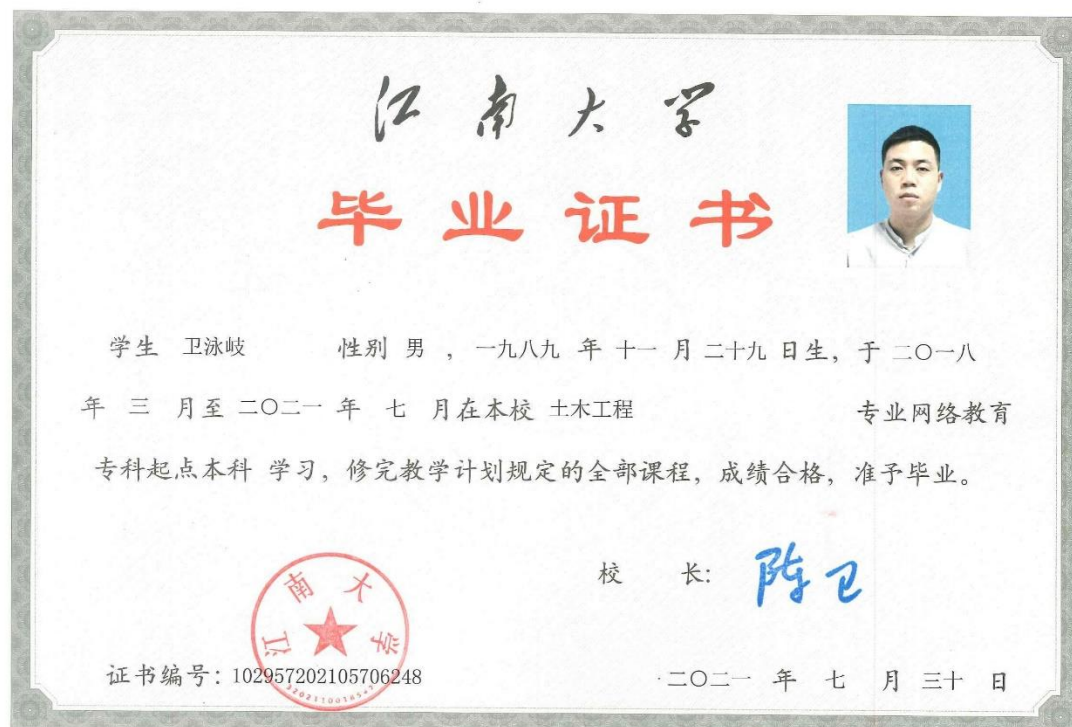 江南大学
毕业证书
学生 卫泳岐 性别 男 ，一九八九 年 十一 月 二十九 日生，于 二〇一八
年 三 月至 二〇二一 年 七 月在本校 土木工程 专业网络教育
专科起点本科 学习，修完教学计划规定的全部课程，成绩合格，准予毕业。
校 长：陈卫
江南大学
证书编号：102957202105706248
二〇二一 年 七 月 三十 日